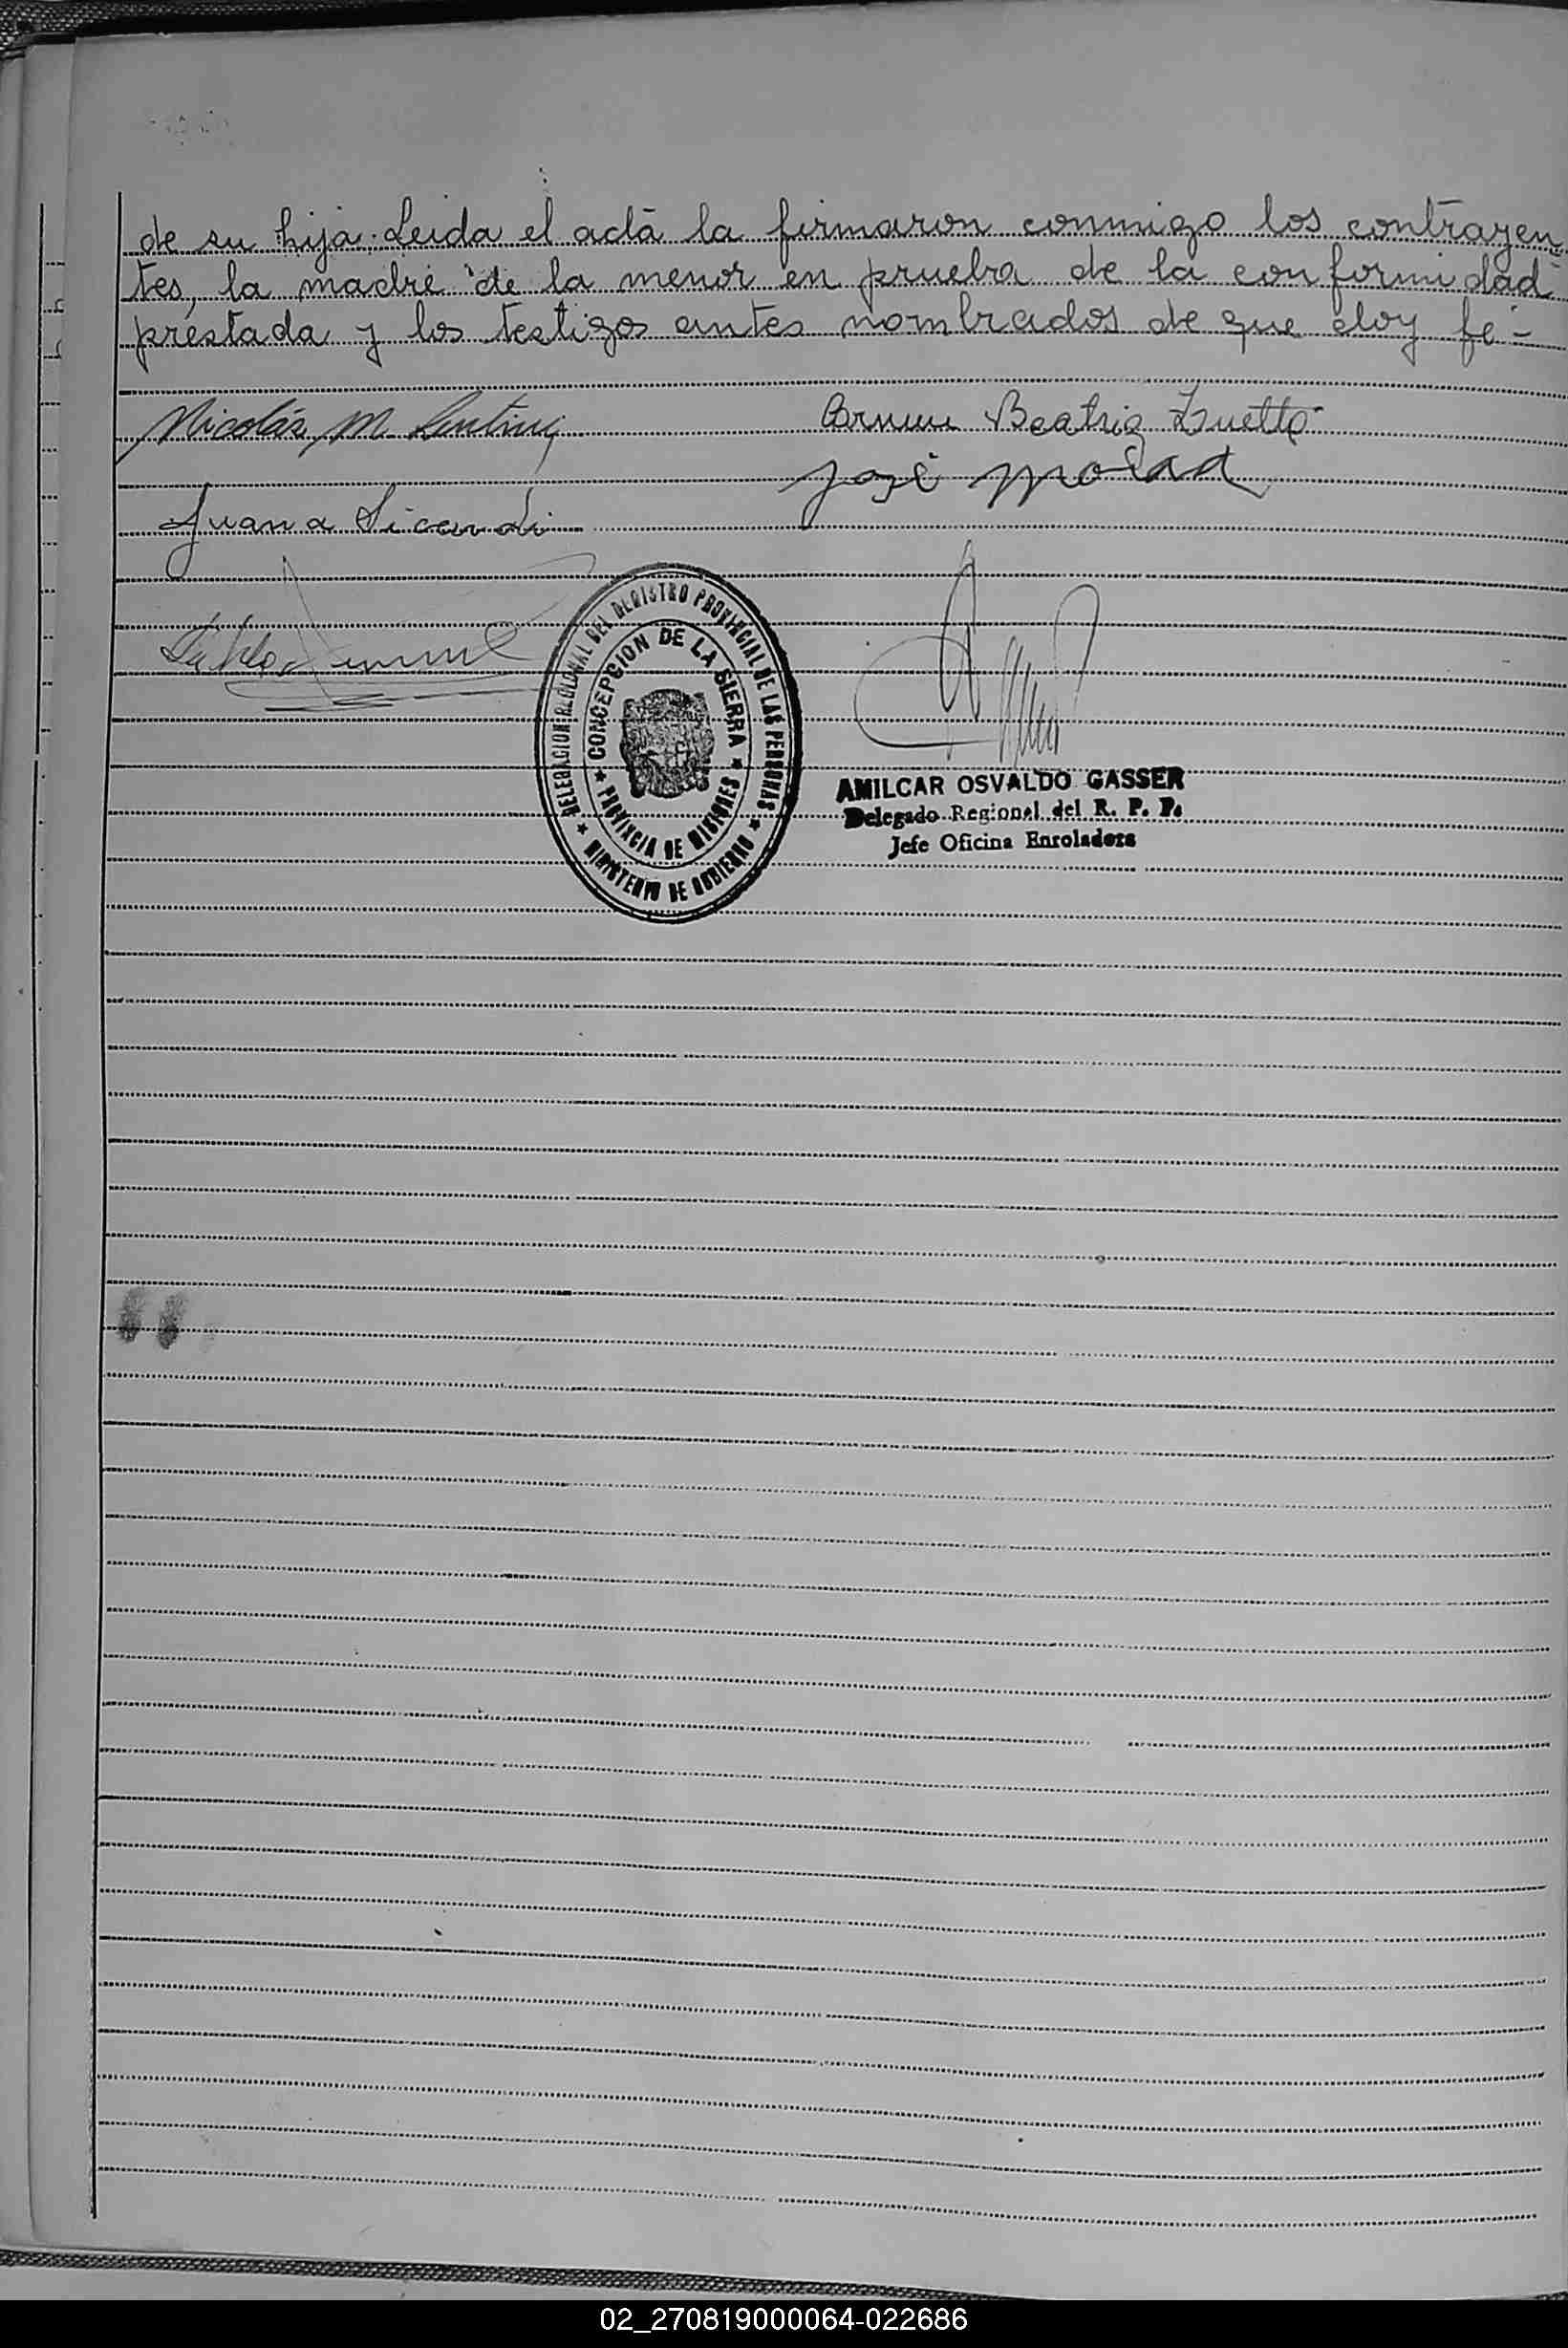 de su hija. Leida el acta la firmaron conmigo los contrayen
tes, la madre de la menor en prueba de la conformidad
prestada y los testigos antes nombrados de que doy fe-
Nicolás M.
Beatriz
José
Juana Sicardi
DELEGACION REGIONAL DEL REGISTRO PROVINCIAL DE LAS PERSONAS
★ MINISTERIO DE GOBIERNO ★
CONCEPCION DE LA SIERRA
★ PROVINCIA DE MISIONES ★
AMILCAR OSVALDO GASSER
Delegado Regional del R. P. P.
Jefe Oficina Enroladora
02_270819000064-022686